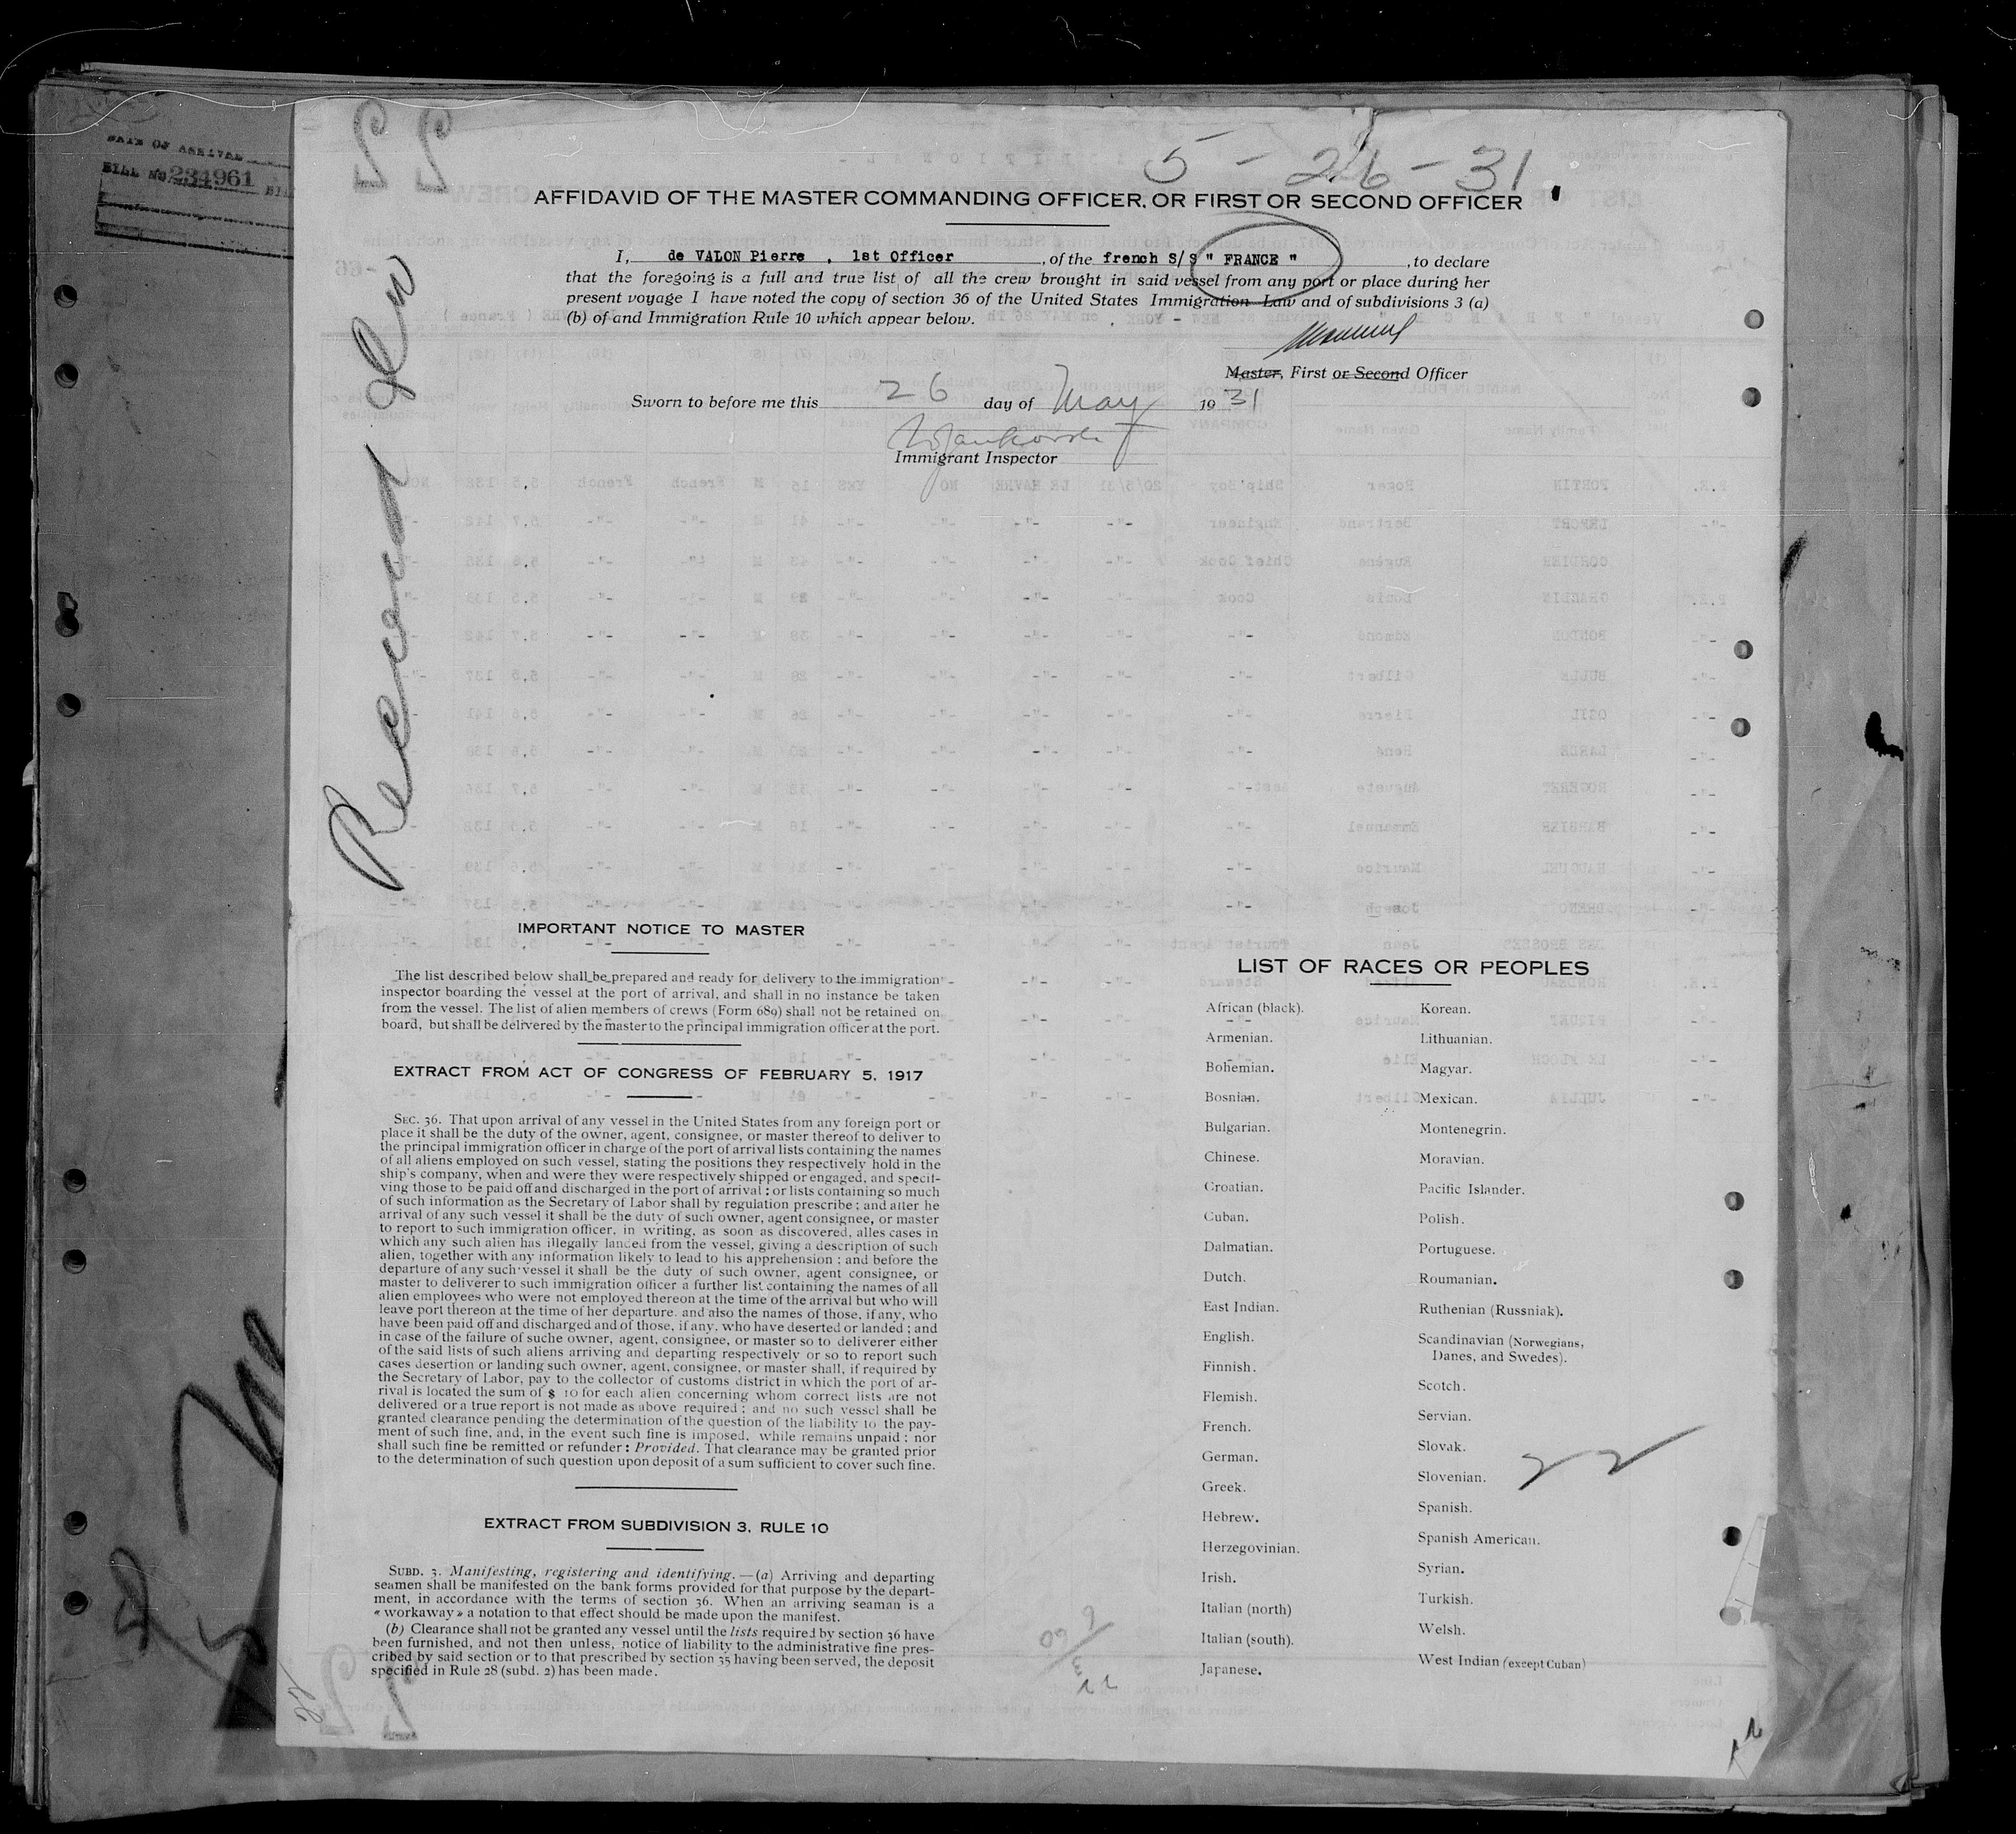 DATE OF ARRIVAL
BILL NO 234961
5 - 26 - 31
AFFIDAVID OF THE MASTER COMMANDING OFFICER, OR FIRST OR SECOND OFFICER
I, de VALON Pierre , 1st Officer , of the french S/S " FRANCE " , to declare
that the foregoing is a full and true list of all the crew brought in said vessel from any port or place during her
present voyage I have noted the copy of section 36 of the United States Immigration Law and of subdivisions 3 (a)
(b) of and Immigration Rule 10 which appear below.
Master, First or Second Officer
Sworn to before me this 26 day of May 1931
Immigrant Inspector
IMPORTANT NOTICE TO MASTER
The list described below shall be prepared and ready for delivery to the immigration
inspector boarding the vessel at the port of arrival, and shall in no instance be taken
from the vessel. The list of alien members of crews (Form 689) shall not be retained on
board, but shall be delivered by the master to the principal immigration officer at the port.
EXTRACT FROM ACT OF CONGRESS OF FEBRUARY 5, 1917
SEC. 36. That upon arrival of any vessel in the United States from any foreign port or
place it shall be the duty of the owner, agent, consignee, or master thereof to deliver to
the principal immigration officer in charge of the port of arrival lists containing the names
of all aliens employed on such vessel, stating the positions they respectively hold in the
ship's company, when and were they were respectively shipped or engaged, and specif-
ving those to be paid off and discharged in the port of arrival ; or lists containing so much
of such information as the Secretary of Labor shall by regulation prescribe ; and after he
arrival of any such vessel it shall be the duty of such owner, agent consignee, or master
to report to such immigration officer, in writing, as soon as discovered, alles cases in
which any such alien has illegally landed from the vessel, giving a description of such
alien, together with any information likely to lead to his apprehension ; and before the
departure of any such vessel it shall be the duty of such owner, agent consignee, or
master to deliverer to such immigration officer a further list containing the names of all
alien employees who were not employed thereon at the time of the arrival but who will
leave port thereon at the time of her departure. and also the names of those, if any, who
have been paid off and discharged and of those, if any, who have deserted or landed ; and
in case of the failure of suche owner, agent, consignee, or master so to deliverer either
of the said lists of such aliens arriving and departing respectively or so to report such
cases desertion or landing such owner, agent, consignee, or master shall, if required by
the Secretary of Labor, pay to the collector of customs district in which the port of ar-
rival is located the sum of $ 10 for each alien concerning whom correct lists are not
delivered or a true report is not made as above required ; and no such vessel shall be
granted clearance pending the determination of the question of the liability to the pay-
ment of such fine, and, in the event such fine is imposed, while remains unpaid ; nor
shall such fine be remitted or refunder : Provided. That clearance may be granted prior
to the determination of such question upon deposit of a sum sufficient to cover such fine.
EXTRACT FROM SUBDIVISION 3, RULE 10
SUBD. 3. Manifesting, registering and identifying. — (a) Arriving and departing
seamen shall be manifested on the bank forms provided for that purpose by the depart-
ment, in accordance with the terms of section 36. When an arriving seaman is a
« workaway » a notation to that effect should be made upon the manifest.
(b) Clearance shall not be granted any vessel until the lists required by section 36 have
been furnished, and not then unless, notice of liability to the administrative fine pres-
cribed by said section or to that prescribed by section 35 having been served, the deposit
specified in Rule 28 (subd. 2) has been made.
LIST OF RACES OR PEOPLES
African (black).
Armenian.
Bohemian.
Bosnian.
Bulgarian.
Chinese.
Croatian.
Cuban.
Dalmatian.
Dutch.
East Indian.
English.
Finnish.
Flemish.
French.
German.
Greek.
Hebrew.
Herzegovinian.
Irish.
Italian (north)
Italian (south).
Japanese.
Korean.
Lithuanian.
Magyar.
Mexican.
Montenegrin.
Moravian.
Pacific Islander.
Polish.
Portuguese.
Roumanian.
Ruthenian (Russniak).
Scandinavian (Norwegians,
Danes, and Swedes).
Scotch.
Servian.
Slovak.
Slovenian.
Spanish.
Spanish American.
Syrian.
Turkish.
Welsh.
West Indian (except Cuban)
22